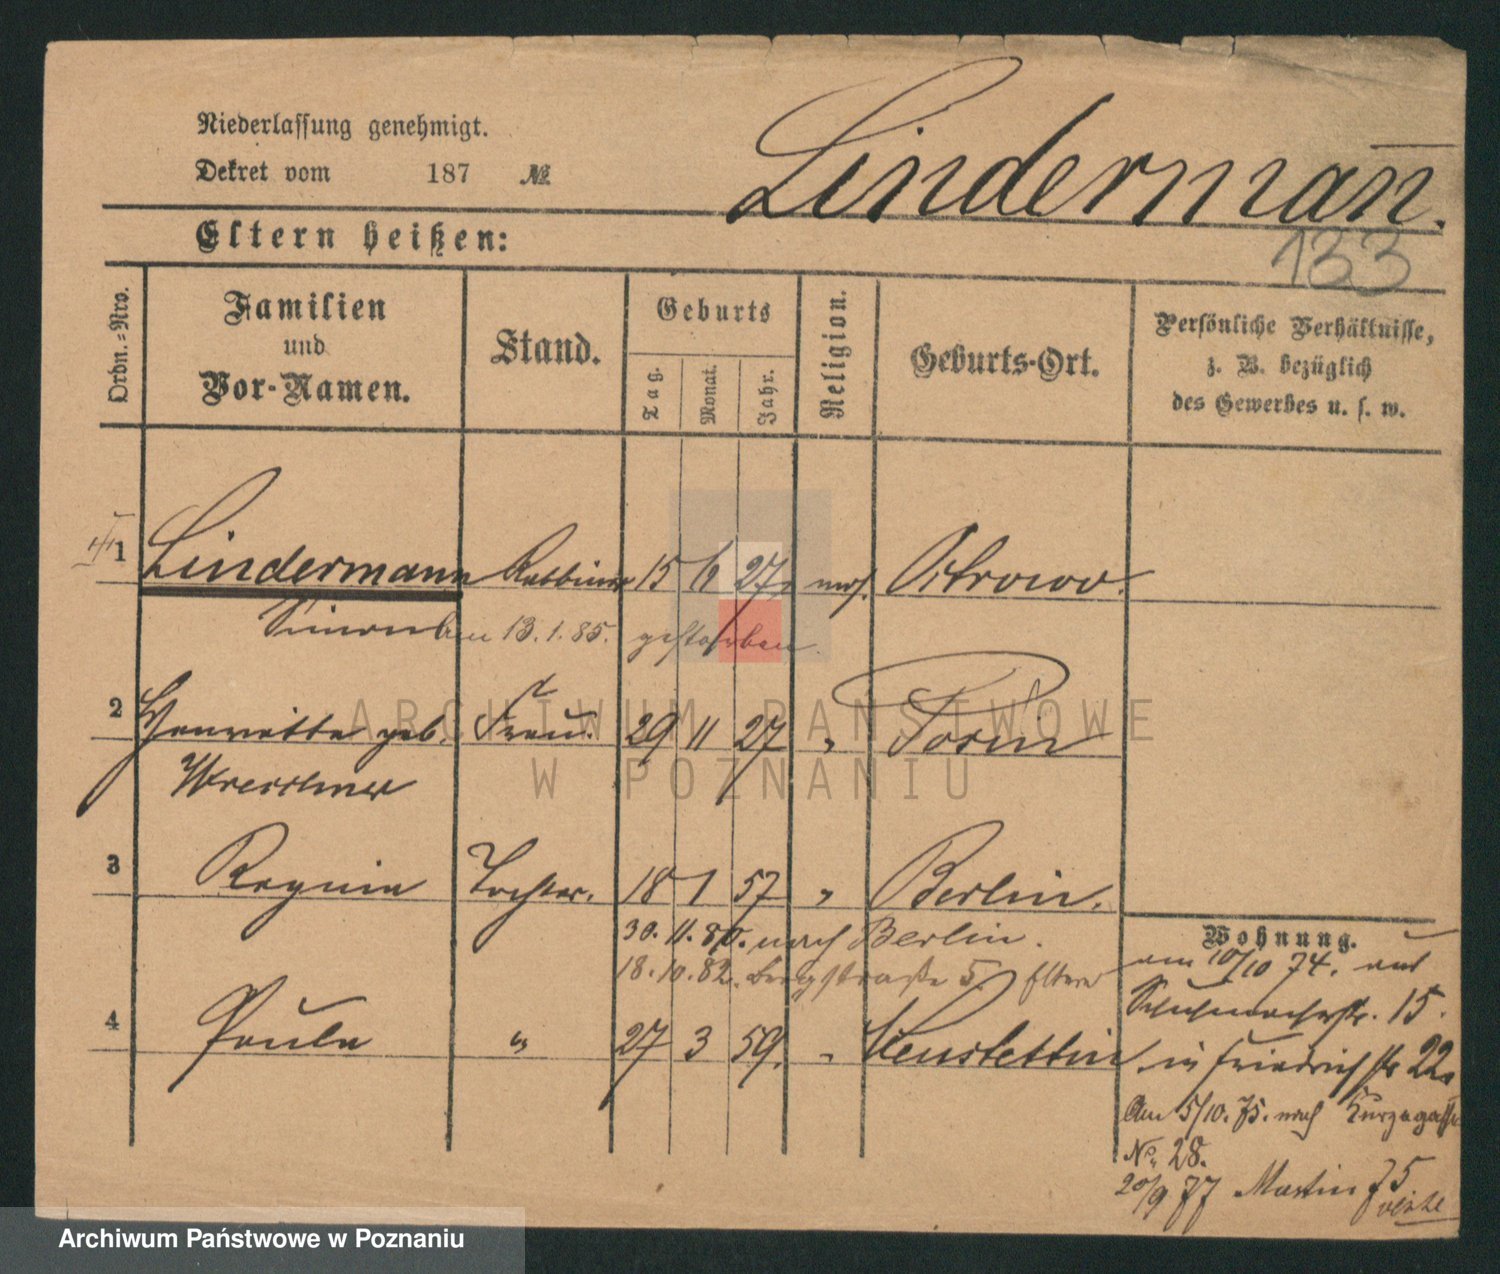 Niederlassung genehmigt.
Dekret vom 187 №
Lindermañ.
133
Eltern heißen:
Ordn.-Nro.
Familien
und
Vor-Namen.
Stand.
Geburts
Tag.
Monat.
Jahr.
Religion.
Geburts-Ort.
Persönliche Verhältnisse,
z. B. bezüglich
des Gewerbes u. s. w.
1 Lindermann Rabbiner 15 27 mos. Ostrowo.
13.1.85. gestorben.
2 Henriette geb. Frau. 29 11 27 " Posen
3 Tochter. 18 1 57 " Berlin.
30.11.80. nach Berlin.
18.10.82. Bergstraße 5. Eltern
4 Paula " 27 3 59. " Neustettin
Wohnung.
am 10/10 74. aus
Schuhmacherstr. 15.
in Friedrichstr 22.
Am 5/10.75. nach
No. 28.
20/9 77 Martin 75
ARCHIWUM PAŃSTWOWE
W POZNANIU
Archiwum Państwowe w Poznaniu